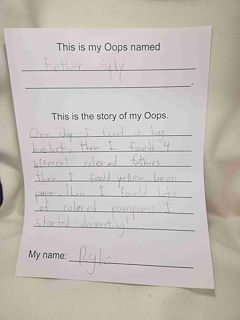 This is my Oops named
Fether
This is the story of my Oops.
One day I found a big
bucket, then I found 4
diferent colored fethers
then I foald yellow
paper. Then I foald lots
of colored pompoms I
started decreting!
My name: